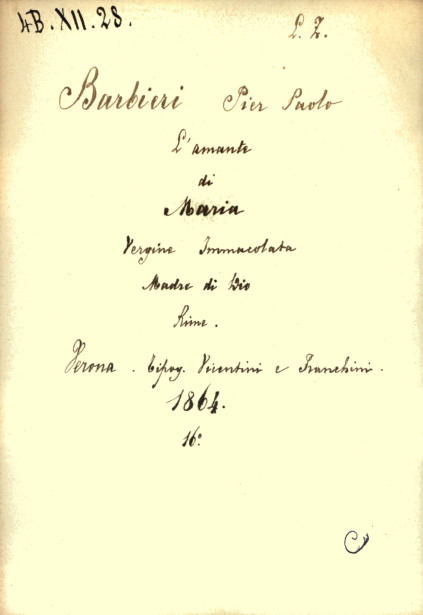 4B.XII.28.
L. Z.
Barbieri Pier Paolo
L'amante
di
Maria
Vergine Immacolata
Madre di Dio
Rime.
Verona. Tipog. Vicentini e Franchini.
1864.
16°
C